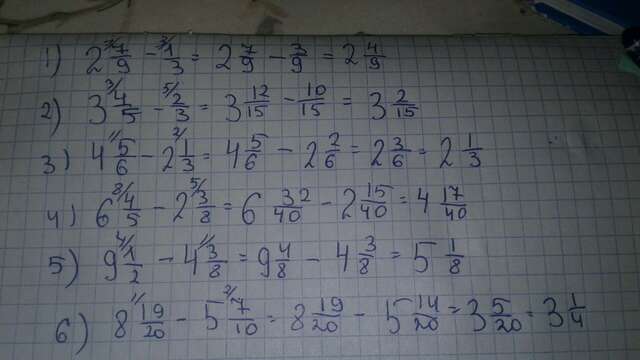 1) 2 3/ 7/9 - 3/ 1/3 = 2 7/9 - 3/9 = 2 4/9
2) 3 3/ 4/5 - 5/ 2/3 = 3 12/15 - 10/15 = 3 2/15
3) 4 1/ 5/6 - 2 2/ 1/3 = 4 5/6 - 2 2/6 = 2 3/6 = 2 1/3
4) 6 8/ 4/5 - 2 5/ 3/8 = 6 32/40 - 2 15/40 = 4 17/40
5) 9 4/ 1/2 - 4 1/ 3/8 = 9 4/8 - 4 3/8 = 5 1/8
6) 8 1/ 19/20 - 5 2/ 7/10 = 8 19/20 - 5 14/20 = 3 5/20 = 3 1/4